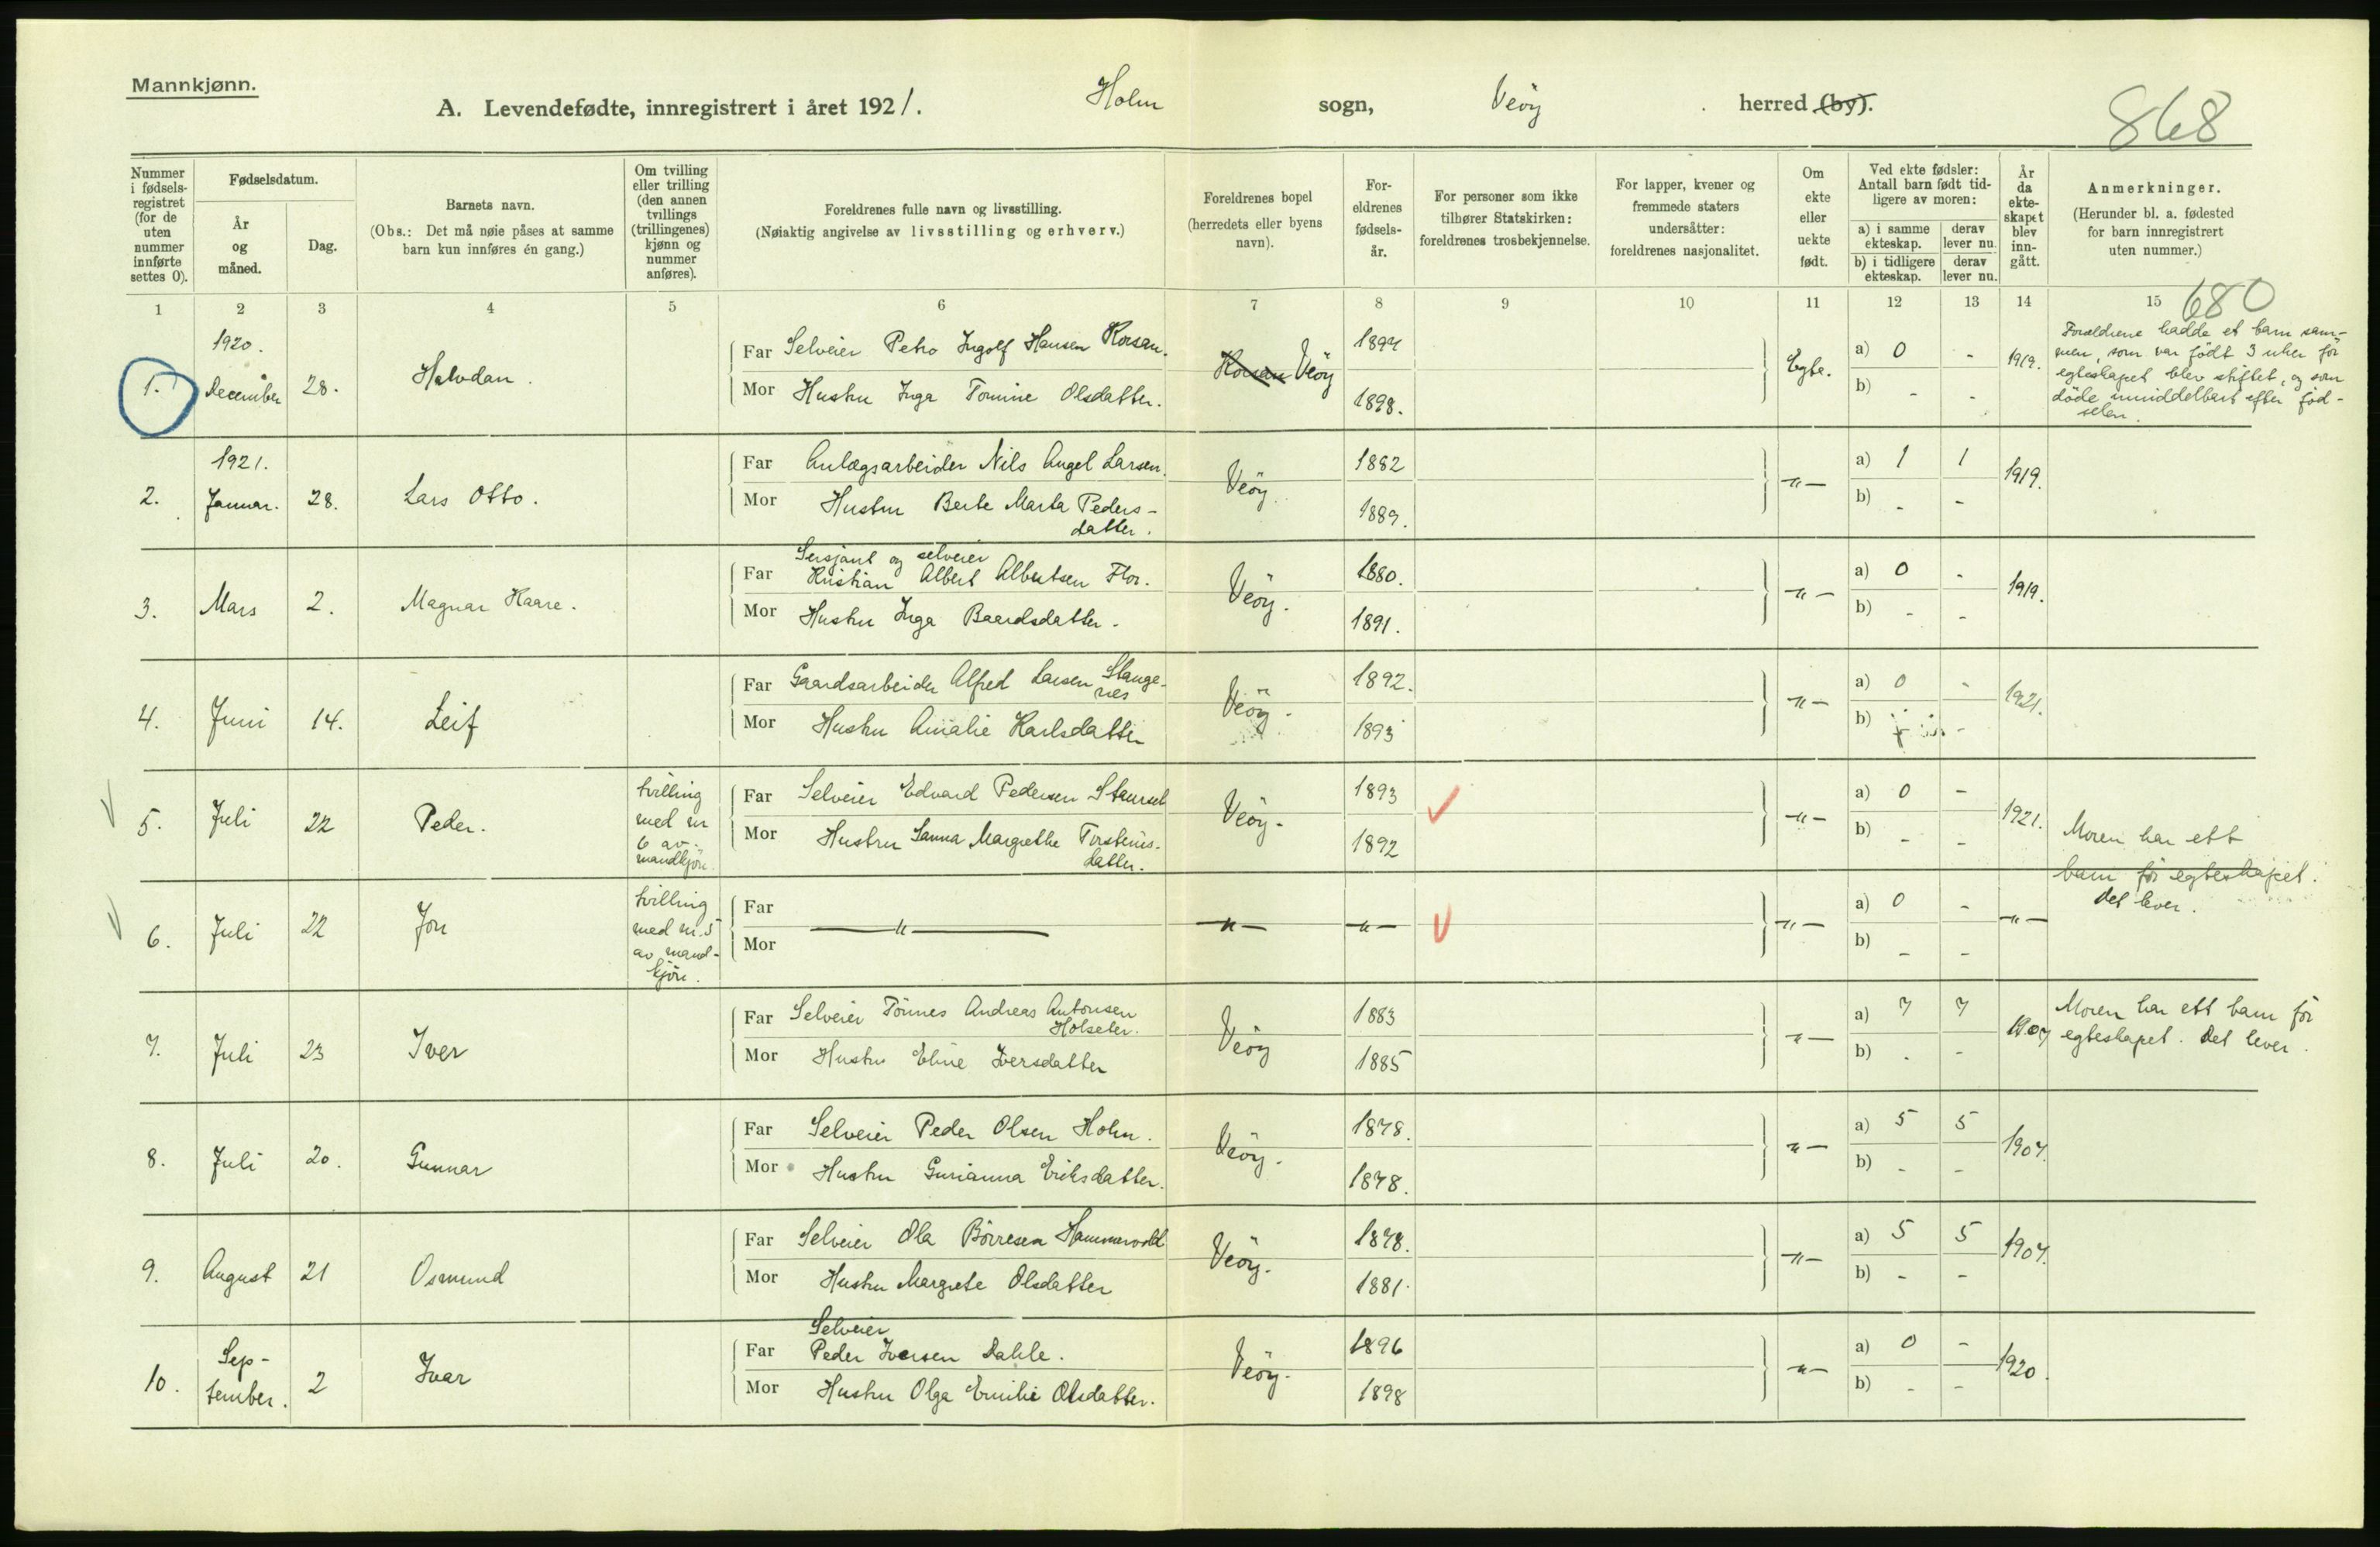 Mannkjønn.
A. Levendefødte, innregistrert i året 1921. Holm sogn, Veöy herred (by).
868
Nummer i fødselsregistret (for de uten nummer innførte settes 0).
Fødselsdatum.
År og måned.
Dag.
Barnets navn.
(Obs.: Det må nøie påses at samme barn kun innføres én gang.)
Om tvilling eller trilling (den annen tvillings (trillingenes) kjønn og nummer anføres).
Foreldrenes fulle navn og livsstilling.
(Nøiaktig angivelse av livsstilling og erhverv.)
Foreldrenes bopel (herredets eller byens navn).
Foreldrenes fødselsår.
For personer som ikke tilhører Statskirken: foreldrenes trosbekjennelse.
For lapper, kvener og fremmede staters undersåtter: foreldrenes nasjonalitet.
Om ekte eller uekte født.
Ved ekte fødsler: Antall barn født tidligere av moren:
a) i samme ekteskap.
derav lever nu.
b) i tidligere ekteskap.
derav lever nu.
År da ekteskapet blev inngått.
Anmerkninger.
(Herunder bl. a. fødested for barn innregistrert uten nummer.)
1 2 3 4 5 6 7 8 9 10 11 12 13 14 15
680
1. 1920. December 28. Halvdan.
Far Selveier Petro Ingolf Hansen Korsan.
Mor Hustru Inga Tomine Olsdatter.
Korsan Veöy 1894 1898. Egte. a) 0 - b) - - 1919.
Forældrene hadde et barn sam-
men, som var födt 3 uker för
egteskapet blev stiftet, og som
döde umiddelbart efter föd-
selen.
2. 1921. Januar. 28. Lars Otto.
Far Anlægsarbeider Nils Angel Larsen.
Mor Hustru Berte Marta Peders-
datter.
Veöy. 1882 1889. -"- a) 1 1 b) - - 1919.
3. Mars 2. Magnar Kaare.
Sersjant og selveier
Far Kristian Albert Albertsen Flor.
Mor Hustru Inga Baardsdatter.
Veöy. 1880. 1891. -"- a) 0 - b) - - 1919.
4. Juni 14. Leif
Far Gaardsarbeider Alfred Larsen Stange-
nes
Mor Hustru Amalie Karlsdatter
Veöy. 1892. 1893 -"- a) 0 - b) - 1921.
5. Juli 22 Peder.
tvilling
med nr
6 av
mandkjön.
Far Selveier Edvard Pedersen Staurset
Mor Hustru Sanna Margrethe Torsteins-
datter.
Veöy. 1893 1892 -"- a) 0 - b) - - 1921.
Moren har ett
barn för egteskapet.
Det lever.
6. Juli 22 Jon
tvilling
med nr. 5
av mand-
kjön.
Far
Mor
-"- -"- -"- -"- a) 0 - b) - - -"-
7. Juli 23 Iver
Far Selveier Tönnes Andreas Antonsen
Holseter.
Mor Hustru Eline Iversdatter
Veöy 1883 1885 -"- a) 7 7 b) - - 1907
Moren har ett barn för
egteskapet. Det lever.
8. Juli 20. Gunnar
Far Selveier Peder Olsen Holm.
Mor Hustru Gurianna Eriksdatter.
Veöy. 1878. 1878. -"- a) 5 5 b) - - 1907.
9. August 21 Osmund
Far Selveier Ola Börresen Hammervold
Mor Hustru Margrete Olsdatter
Veöy. 1878. 1881. -"- a) 5 5 b) - - 1907.
10. Sep-
tember. 2 Ivar
Selveier
Far Peder Iversen Dahle.
Mor Hustru Olga Emilie Olsdatter.
Veöy. 1896 1898 -"- a) 0 - b) - - 1920.